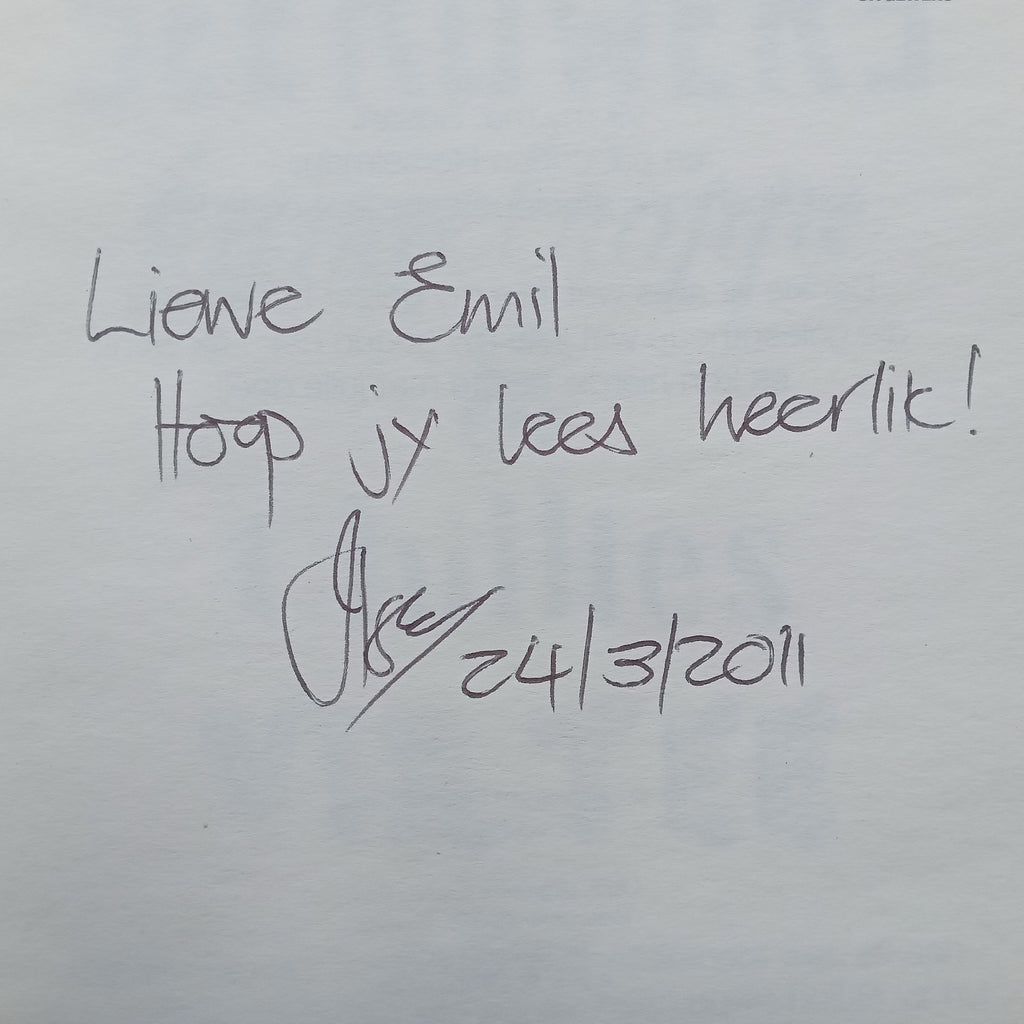 Liewe Emil
Hoop jy lees heerlik!
Ilse 24/3/2011